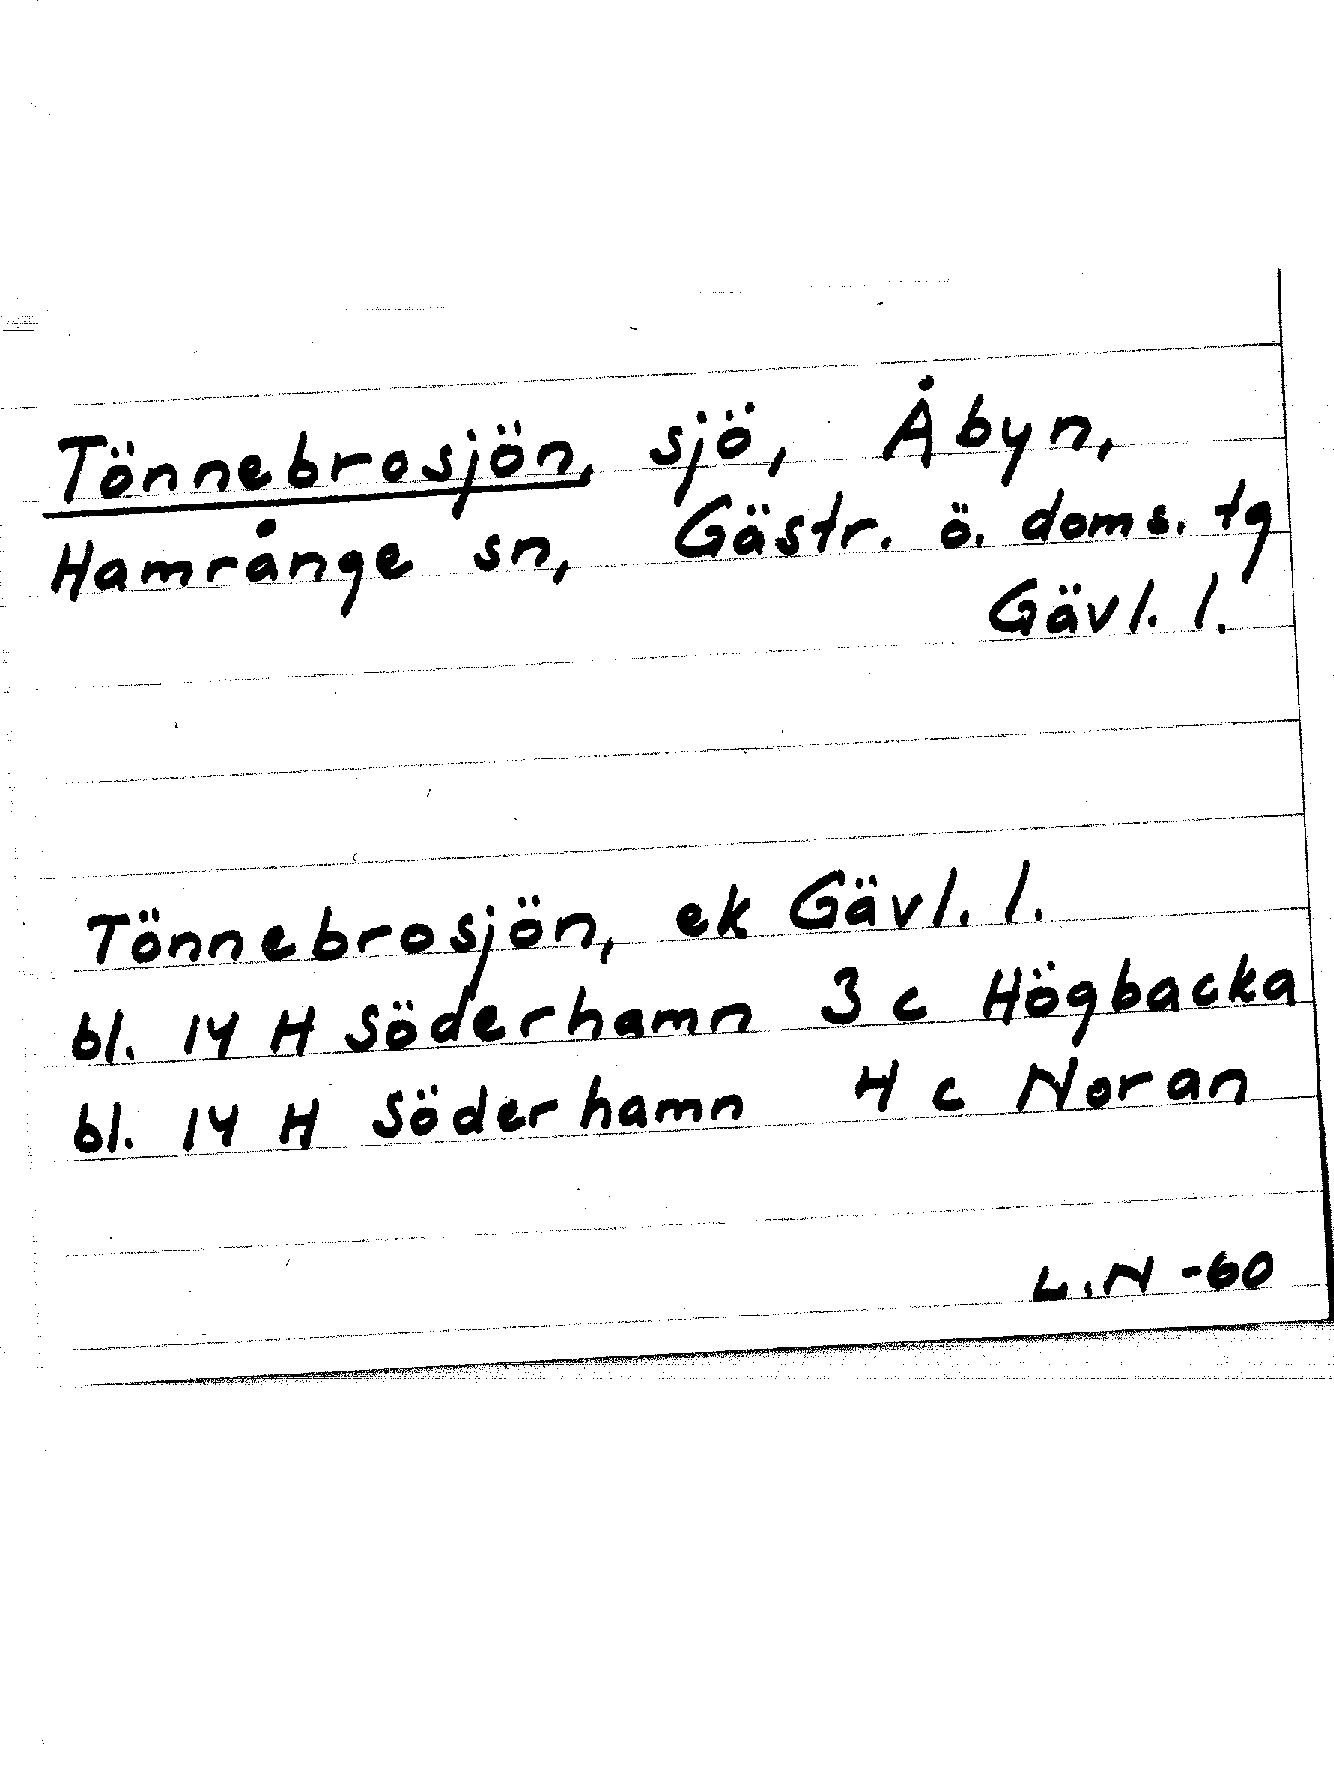 Tönnebrosjön, sjö, Åbyn,
Hamrånge sn, Gästr. ö. doms. tg
Gävl. l.
Tönnebrosjön, ek Gävl. l.
bl. 14 H Söderhamn 3 c Högbacka
bl. 14 H Söderhamn 4 c Noran
L.N -60